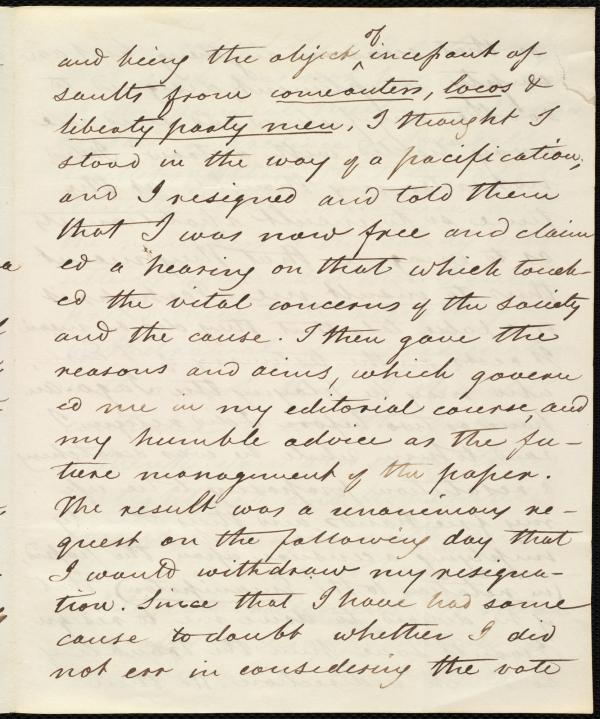 and being the object of incessant as-
saults from comeouters, locos &
liberty party men, I thought I
stood in the way of a pacification,
and I resigned and told them
that I was now free and claim
ed a hearing on that which touch-
ed the vital concerns of the society
and the cause. I then gave the
reasons and aims, which govern
ed me in my editorial course, and
my humble advice as the fu-
ture management of the paper.
The result was a unanimous re-
quest on the following day that
I would withdraw my resigna-
tion. Since that I have had some
cause to doubt whether I did
not err in considering the vote